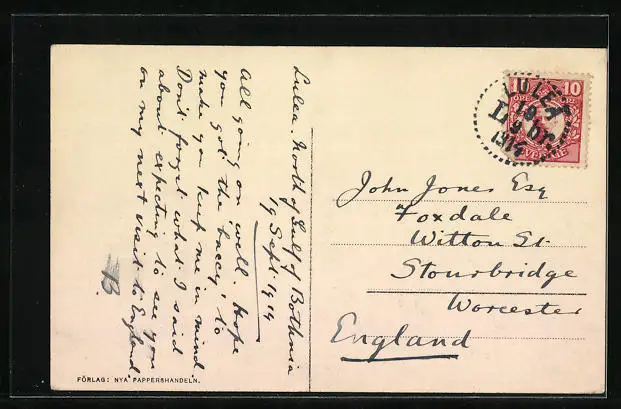 Lulea. North of Gulf of Bothnia
19 Sept 1914
All going on well. Hope
you got the baccy, to
make you keep me in mind.
Don't forget what I said
about expecting to see you
on my next visit to England.
B
FÖRLAG: NYA PAPPERSHANDELN.
LULEÅ
19
9
1914
10
ÖRE
SVERIGE
John Jones Esq
Foxdale
Witton St.
Stourbridge
Worcester
England